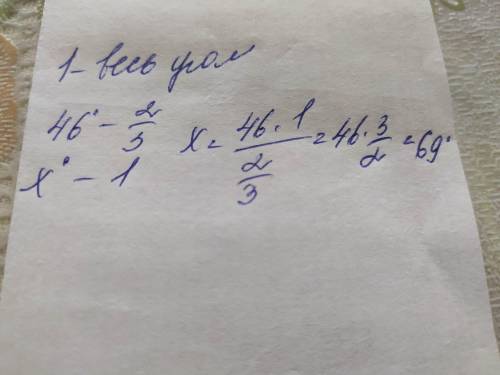 1 - весь угол
46° - 2/3
x° - 1
x = 46 · 1 / 2/3 = 46 · 3/2 = 69°